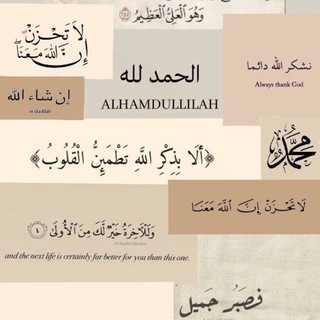 وَهُوَ الْعَلِيُّ الْعَظِيمُ
لَا تَحْزَنْ
إِنَّ اللَّهَ مَعَنَا
الحمد لله
ALHAMDULLILAH
نشكر الله دائما
Always thank God
إن شاء الله
in sha Allah
محمد
﴿أَلَا بِذِكْرِ اللَّهِ تَطْمَئِنُّ الْقُلُوبُ﴾
لَا تَحْزَنْ إِنَّ اللَّهَ مَعَنَا
وَلَلْآخِرَةُ خَيْرٌ لَّكَ مِنَ الْأُولَىٰ ٤
and the next life is certainly far better for you than this one.
فَصَبْرٌ جَمِيلٌ